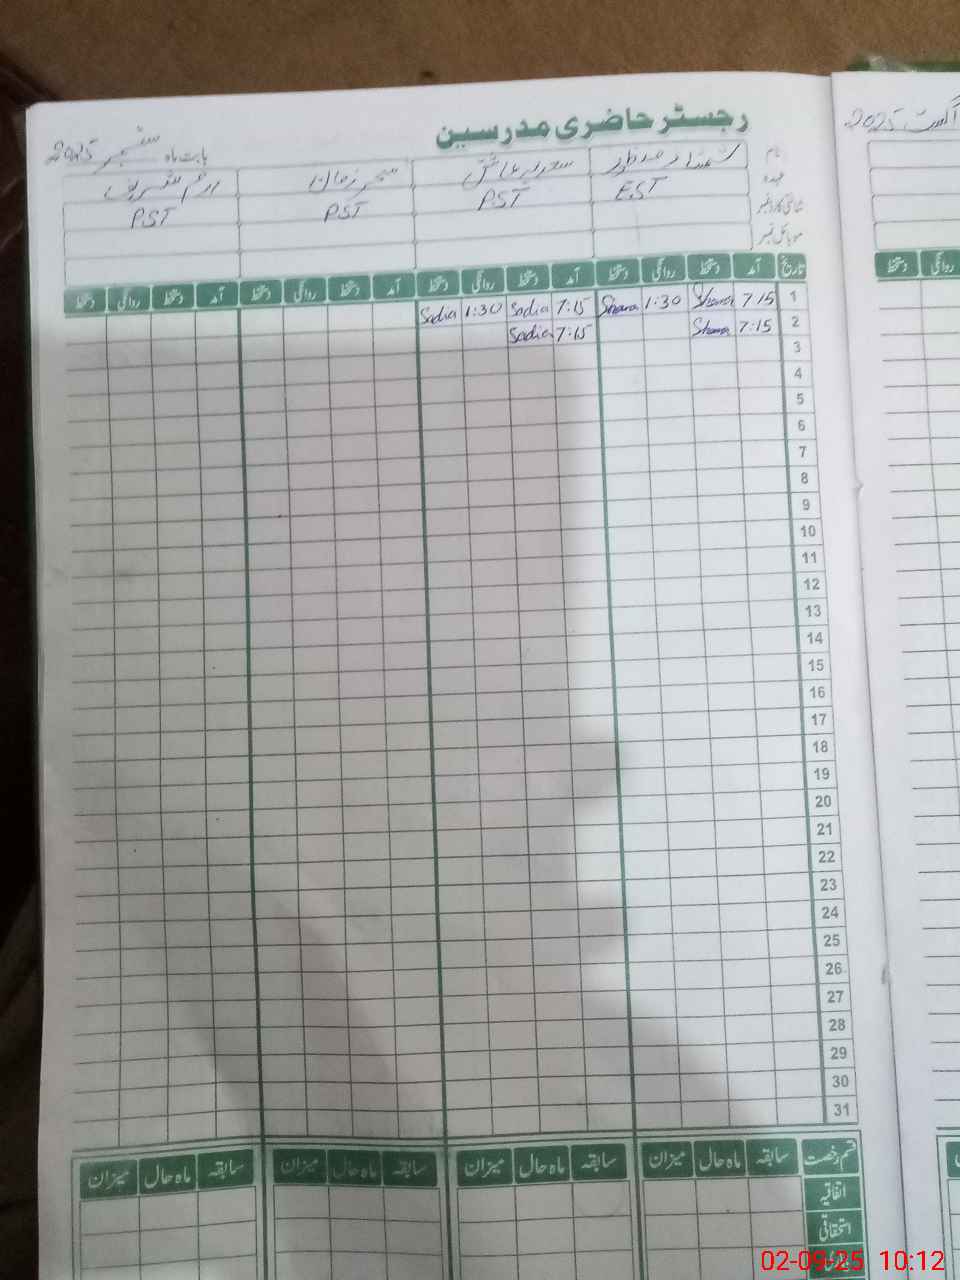 رجسٹر حاضری مدرسین
بابت ماہ ستمبر 2025
اگست 2025
نام
عہدہ EST PST PST PST
شناختی کارڈ نمبر
موبائل نمبر
تاریخ آمد دستخط روانگی دستخط آمد دستخط روانگی دستخط آمد دستخط روانگی دستخط آمد دستخط روانگی دستخط
روانگی دستخط
1 7:15 Shama 1:30 Shama 7:15 Sadia 1:30 Sadia
2 7:15 Shama 7:15 Sadia
3
4
5
6
7
8
9
10
11
12
13
14
15
16
17
18
19
20
21
22
23
24
25
26
27
28
29
30
31
قسم رخصت سابقہ ماہ حال میزان سابقہ ماہ حال میزان سابقہ ماہ حال میزان سابقہ ماہ حال میزان
اتفاقیہ
استحقاقی
02-09-25 10:12